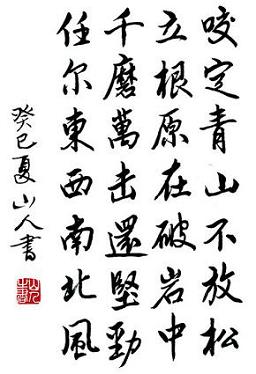 咬定青山不放松
立根原在破岩中
千磨萬击還堅勁
任尔東西南北風
癸巳夏山人書